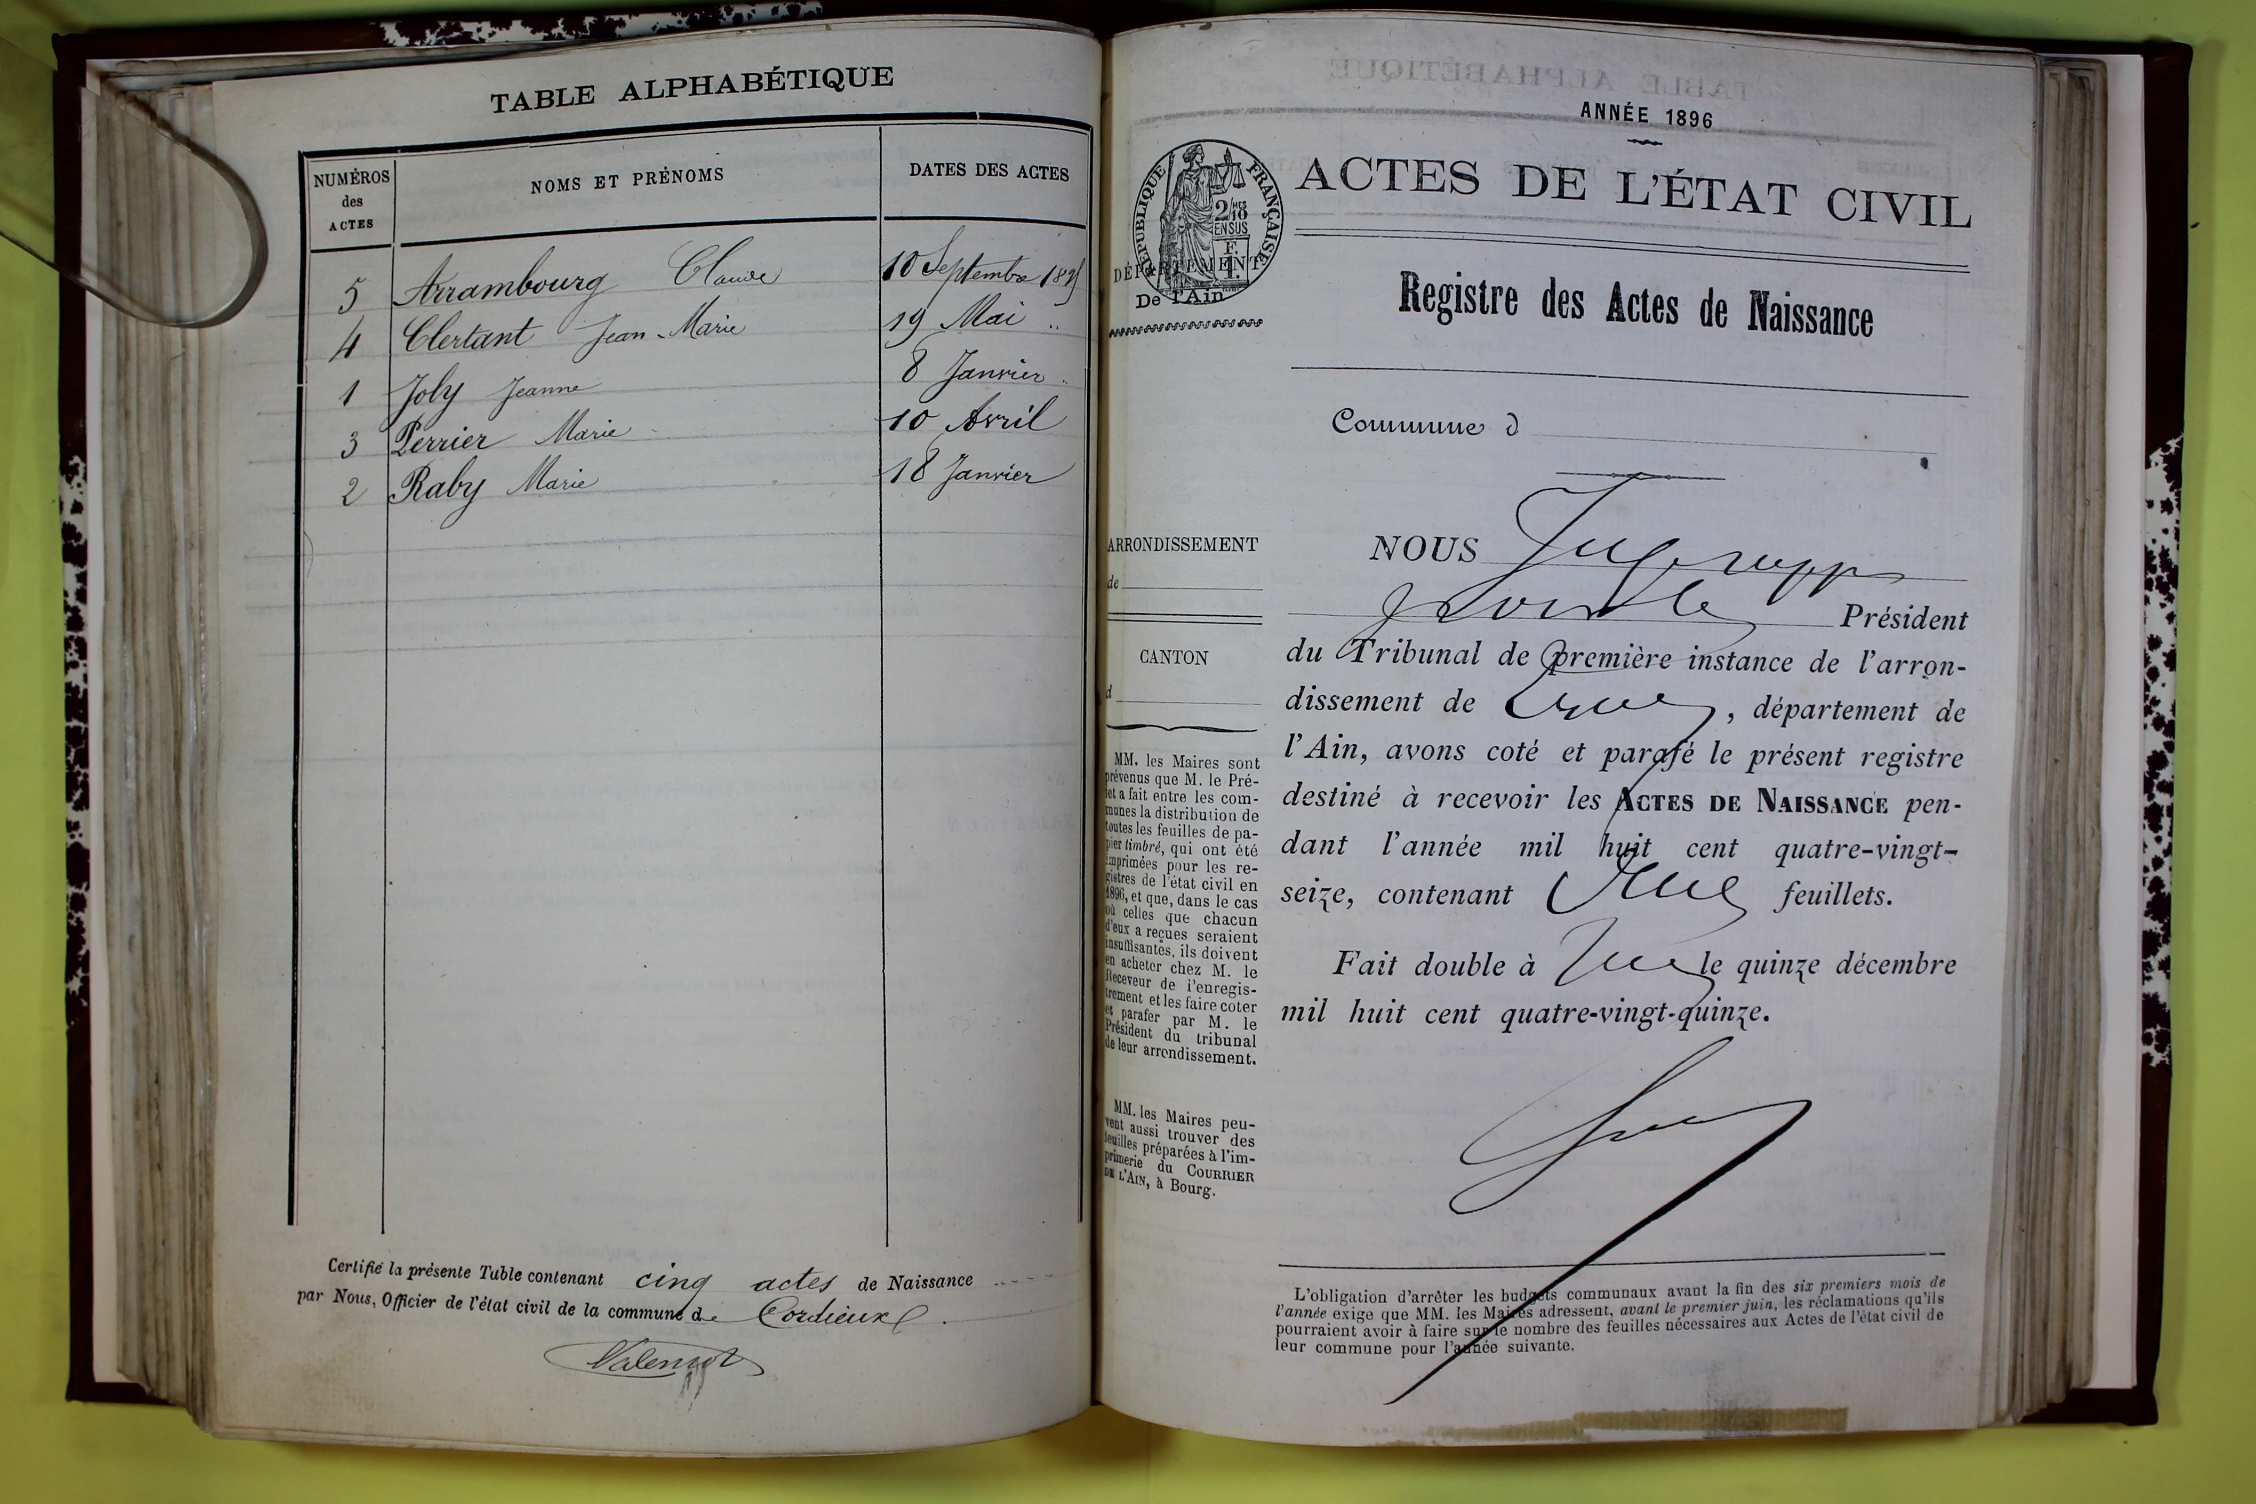 TABLE ALPHABÉTIQUE
NUMÉROS
des
ACTES
NOMS ET PRÉNOMS
DATES DES ACTES
5 Arrambourg Claude 10 Septembre 1895
4 Clertant Jean-Marie 19 Mai "
1 Joly Jeanne 8 Janvier "
3 Perrier Marie 10 Avril
2 Raby Marie 18 Janvier
Certifié la présente Table contenant cinq actes de Naissance
par Nous, Officier de l'état civil de la commune de Cordieux
ANNÉE 1896
ACTES DE L'ÉTAT CIVIL
RÉPUBLIQUE FRANÇAISE
DÉPARTEMENT
De l'Ain
Registre des Actes de Naissance
Commune d
ARRONDISSEMENT
de
CANTON
d
MM. les Maires sont
prévenus que M. le Pré-
fet a fait entre les com-
munes la distribution de
toutes les feuilles de pa-
pier timbré, qui ont été
imprimées pour les re-
gistres de l'état civil en
1896, et que, dans le cas
où celles que chacun
d'eux a reçues seraient
insuffisantes, ils doivent
en acheter chez M. le
Receveur de l'enregis-
trement et les faire coter
et parafer par M. le
Président du tribunal
de leur arrondissement.
MM. les Maires peu-
vent aussi trouver des
feuilles préparées à l'im-
primerie du COURRIER
DE L'AIN, à Bourg.
NOUS
Président
du Tribunal de première instance de l'arron-
dissement de , département de
l'Ain, avons coté et parafé le présent registre
destiné à recevoir les ACTES DE NAISSANCE pen-
dant l'année mil huit cent quatre-vingt-
seize, contenant feuillets.
Fait double à le quinze décembre
mil huit cent quatre-vingt-quinze.
L'obligation d'arrêter les budgets communaux avant la fin des six premiers mois de
l'année exige que MM. les Maires adressent, avant le premier juin, les réclamations qu'ils
pourraient avoir à faire sur le nombre des feuilles nécessaires aux Actes de l'état civil de
leur commune pour l'année suivante.